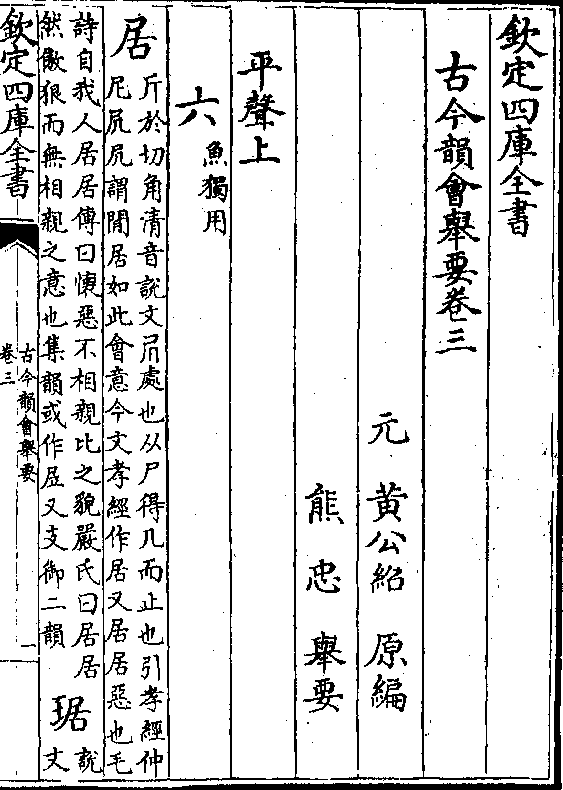 欽定四庫全書
古今韻會舉要卷三
元 黃公紹 原編
熊忠 舉要
平聲上
六魚獨用
居斤於切角清音說文凥處也从尸得几而止也引孝經仲
尼凥凥謂閒居如此會意今文孝經作居又居居惡也毛
詩自我人居居傳曰懷惡不相親比之貌嚴氏曰居居
然傲狠而無相親之意也集韻或作𡨢又支御二韻
琚說文
欽定四庫全書
古今韻會舉要
卷三
一